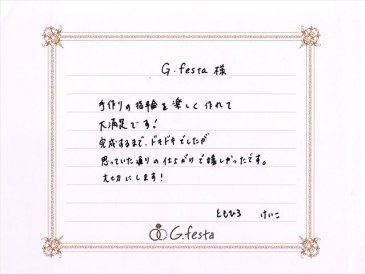 G.festa 様
手作りの指輪を楽しく作れて
大満足です!
完成するまで、ドキドキでしたが
思っていた通りの仕上がりで嬉しかったです。
大切にします!
ともひろ けいこ
G.festa